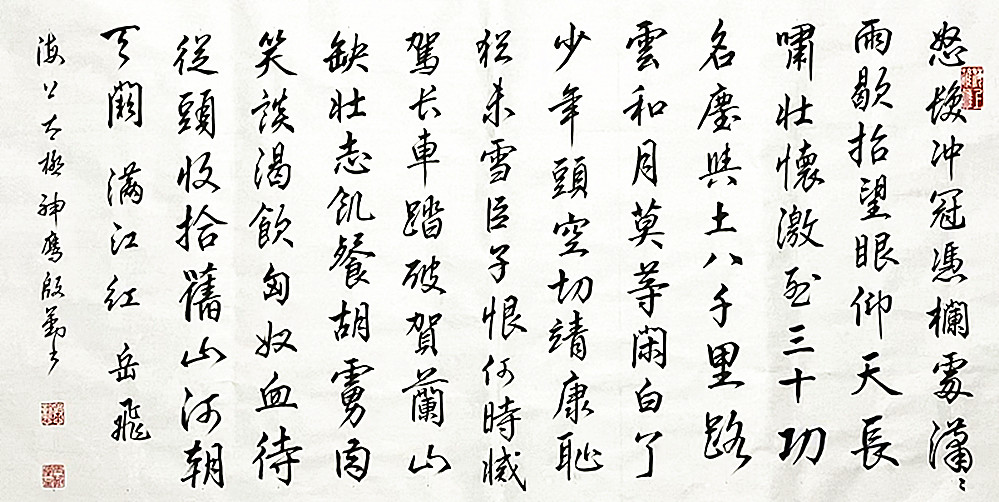 怒髮冲冠憑欄處瀟々
雨歇抬望眼仰天長
嘯壯懷激烈三十功
名塵與土八千里路
雲和月莫等閑白了
少年頭空切靖康恥
猶未雪臣子恨何時滅
駕长車踏破賀蘭山
缺壯志飢餐胡虜肉
笑談渴飲匈奴血待
從頭收拾舊山河朝
天闕 滿江紅 岳飛
太極神鷹殷